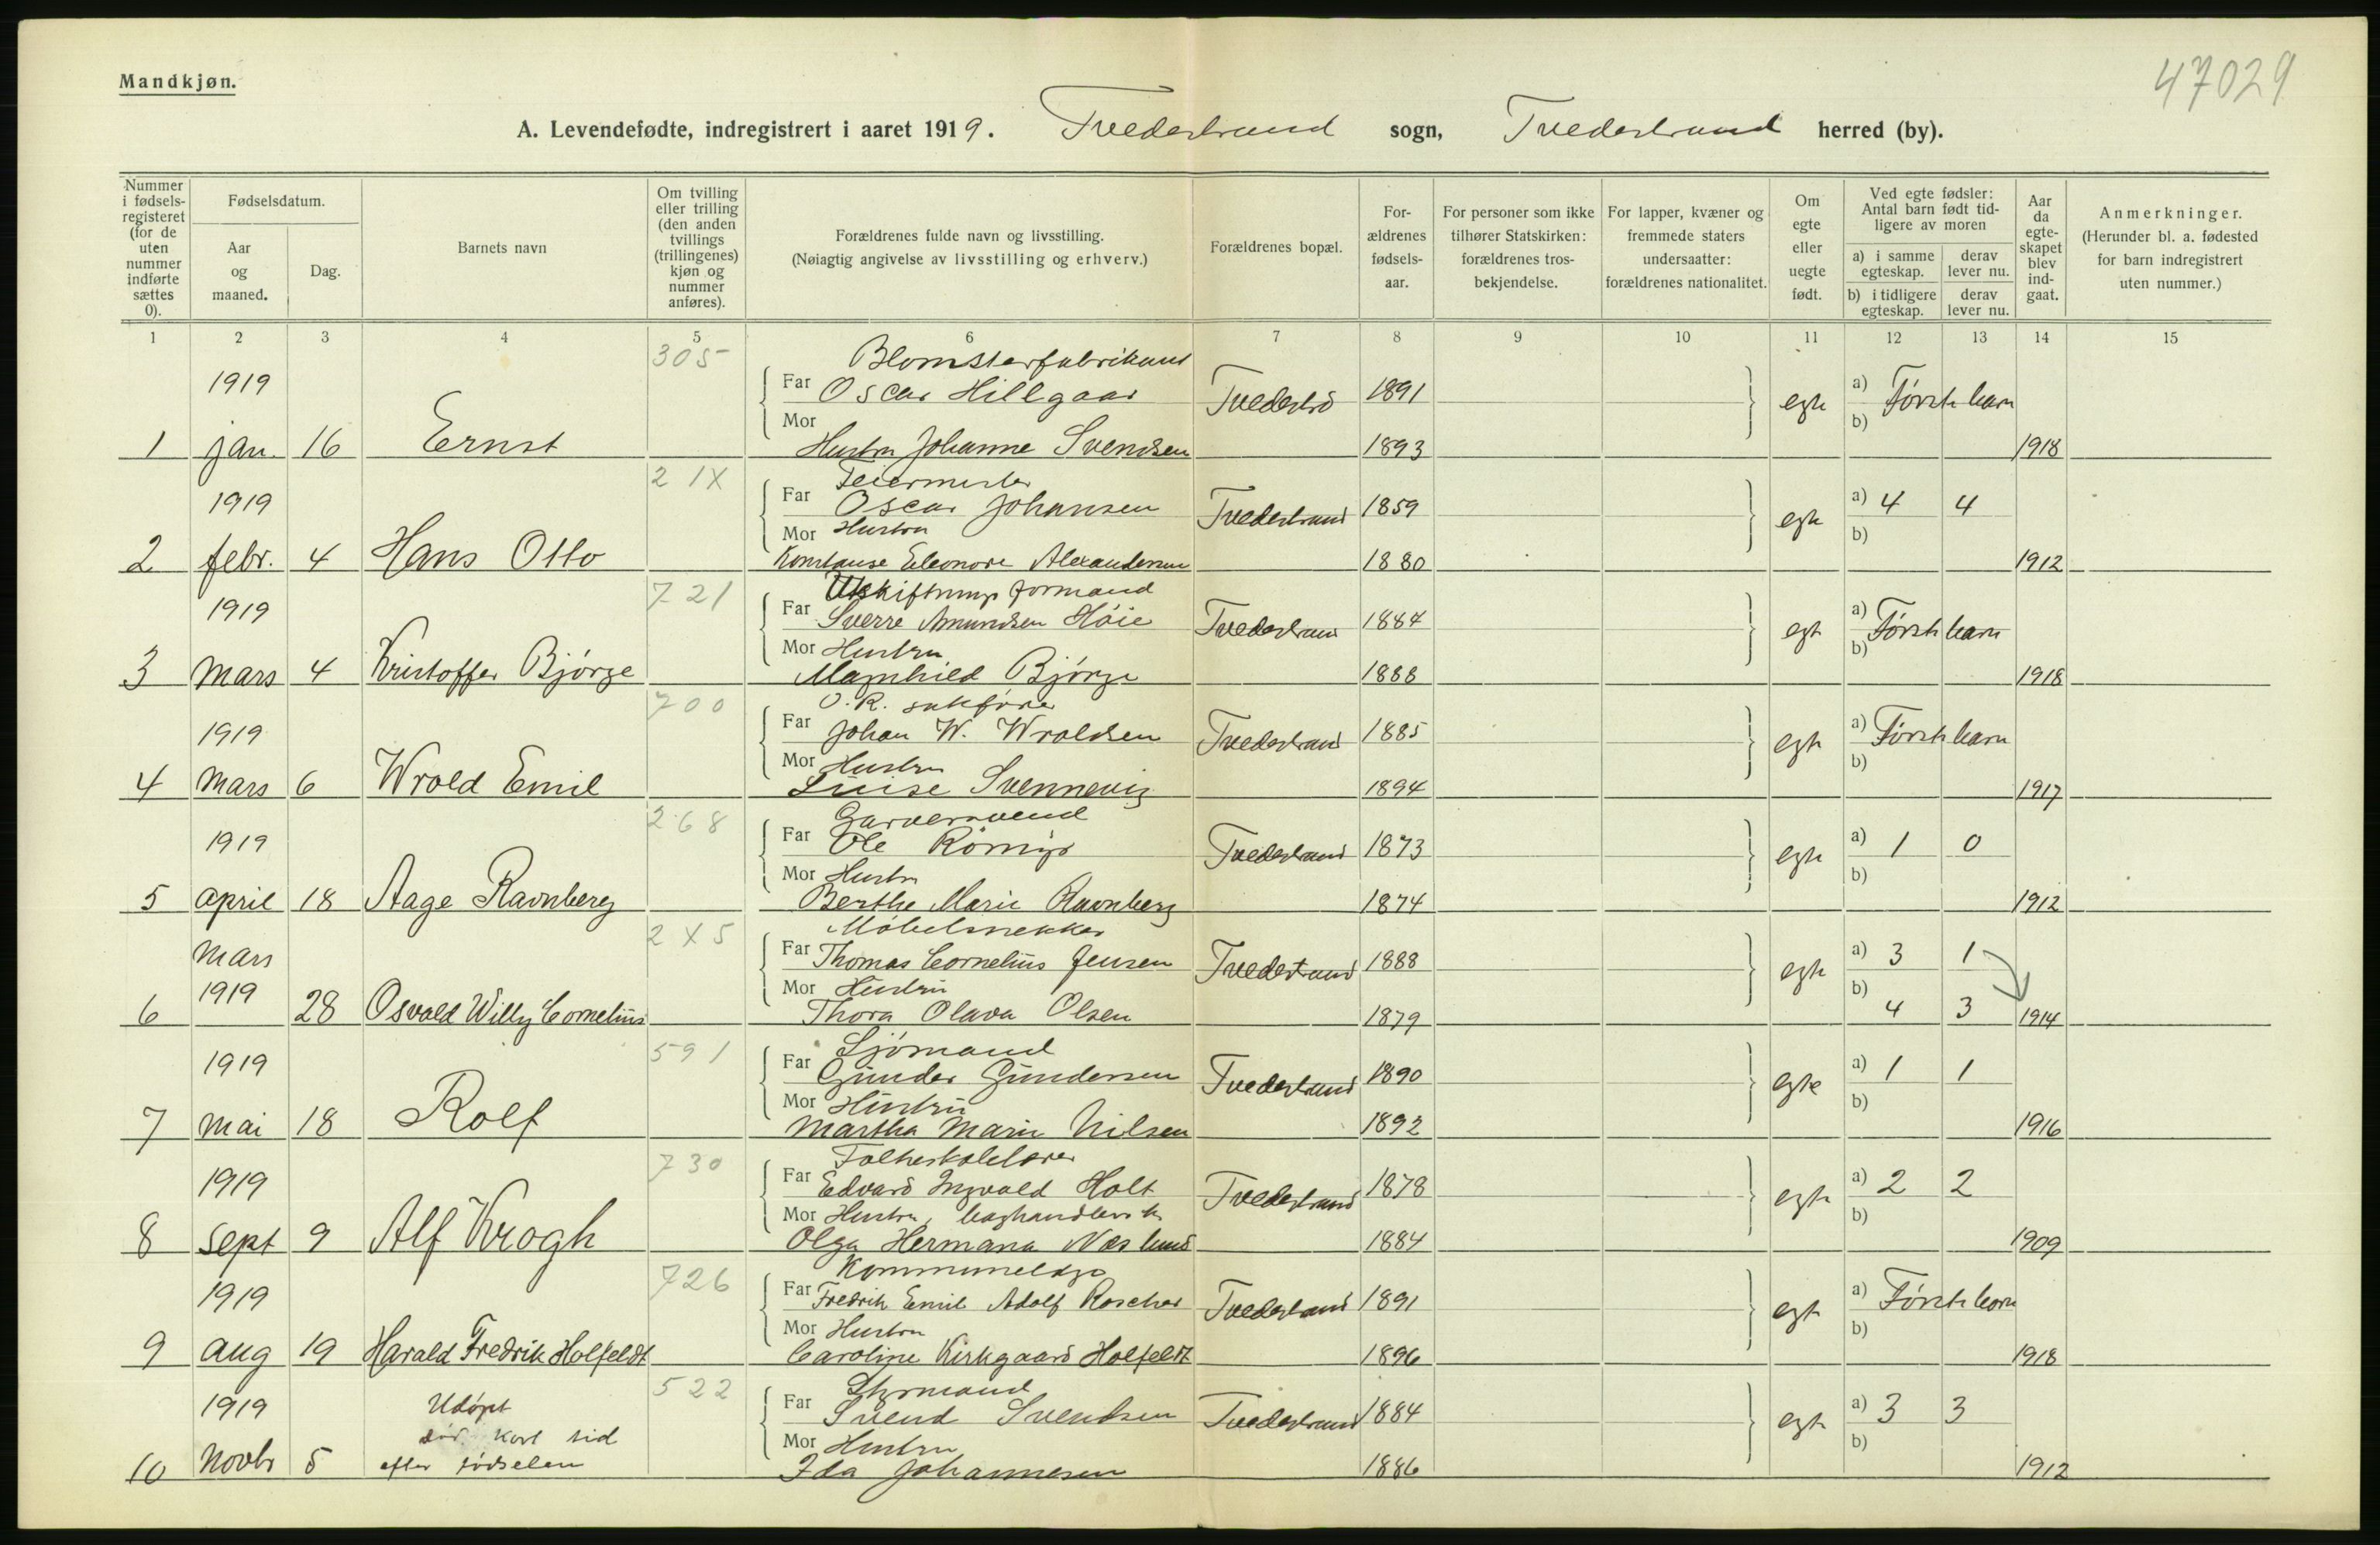 47029
Mandkjøn.
A. Levendefødte, indregistrert i aaret 1919. Tvedestrand sogn, Tvedestrand herred (by).
Nummer i fødsels-registeret (for de uten nummer indførte sættes 0).
Fødselsdatum.
Aar og maaned.
Dag.
Barnets navn
Om tvilling eller trilling (den anden tvillings (trillingenes) kjøn og nummer anføres).
Forældrenes fulde navn og livsstilling.
(Nøiagtig angivelse av livsstilling og erhverv.)
Forældrenes bopæl.
For-ældrenes fødsels-aar.
For personer som ikke tilhører Statskirken: forældrenes tros-bekjendelse.
For lapper, kvæner og fremmede staters undersaatter: forældrenes nationalitet.
Om egte eller uegte født.
Ved egte fødsler: Antal barn født tid-ligere av moren
a) i samme egteskap. derav lever nu.
b) i tidligere egteskap. derav lever nu.
Aar da egte-skapet blev ind-gaat.
Anmerkninger.
(Herunder bl. a. fødested for barn indregistrert uten nummer.)
1 2 3 4 5 6 7 8 9 10 11 12 13 14 15
305 Blomsterfabrikant
1919 Far Oscar Hillgaar Tvedestrd 1891 egte a) Første barn
Mor b)
1 jan. 16 Ernst Hustru Johanne Svendsen 1893 1918
21X Feiermester
1919 Far Oscar Johansen Tvedestrand 1859 egte a) 4 4
Mor Hustru b)
2 febr. 4 Hans Otto Konstanse Eleonore Alexandersen 1880 1912
721 Utskiftnings formand
1919 Far Sverre Amundsen Höie Tvedestrand 1884 egte a) Første barn
Mor Hustru b)
3 Mars 4 Kristoffer Bjørge Magnhild Bjørge 1888 1918
700 O. R. sakfører
1919 Far Johan W. Wroldsen Tvedestrand 1885 egte a) Første barn
Mor Hustru b)
4 Mars 6 Wrold Emil Luise Svennevig 1894 1917
268 Garversvend
1919 Far Ole Tvedestrand 1873 egte a) 1 0
Mor Hustru b)
5 april 18 Aage Ravnberg Berthe Marie Ravnberg 1874 1912
2X5 Møbelsnekker
Mars Far Thomas Cornelius Jensen Tvedestrand 1888 egte a) 3 1
1919 Mor Hustru b)
6 28 Osvald Willy Cornelius Thora Olava Olsen 1879 4 3 1914
591 Sjømand
1919 Far Gunder Gundersen Tvedestrand 1890 egte a) 1 1
Mor Hustru b)
7 Mai 18 Rolf Martha Marie Nilsen 1892 1916
730 Folkeskolelærer
1919 Far Edvard Ingvald Holt Tvedestrand 1878 egte a) 2 2
Mor Hustru, b)
8 Sept 9 Alf Krogh Olga Hermana Næslund 1884 1909
726
1919 Far Fredrik Emil Adolf Roscher Tvedestrand 1891 egte a) Første barn
Mor Hustru b)
9 Aug 19 Harald Fredrik Holfeldt Caroline Kirkgaard Holfeldt 1896 1918
522 Styrmand
1919 Udøpt Far Svend Svendsen Tvedestrand 1884 egte a) 3 3
død kort tid Mor Hustru b)
10 Novbr 5 efter fødselen Ida Johannesen 1886 1912